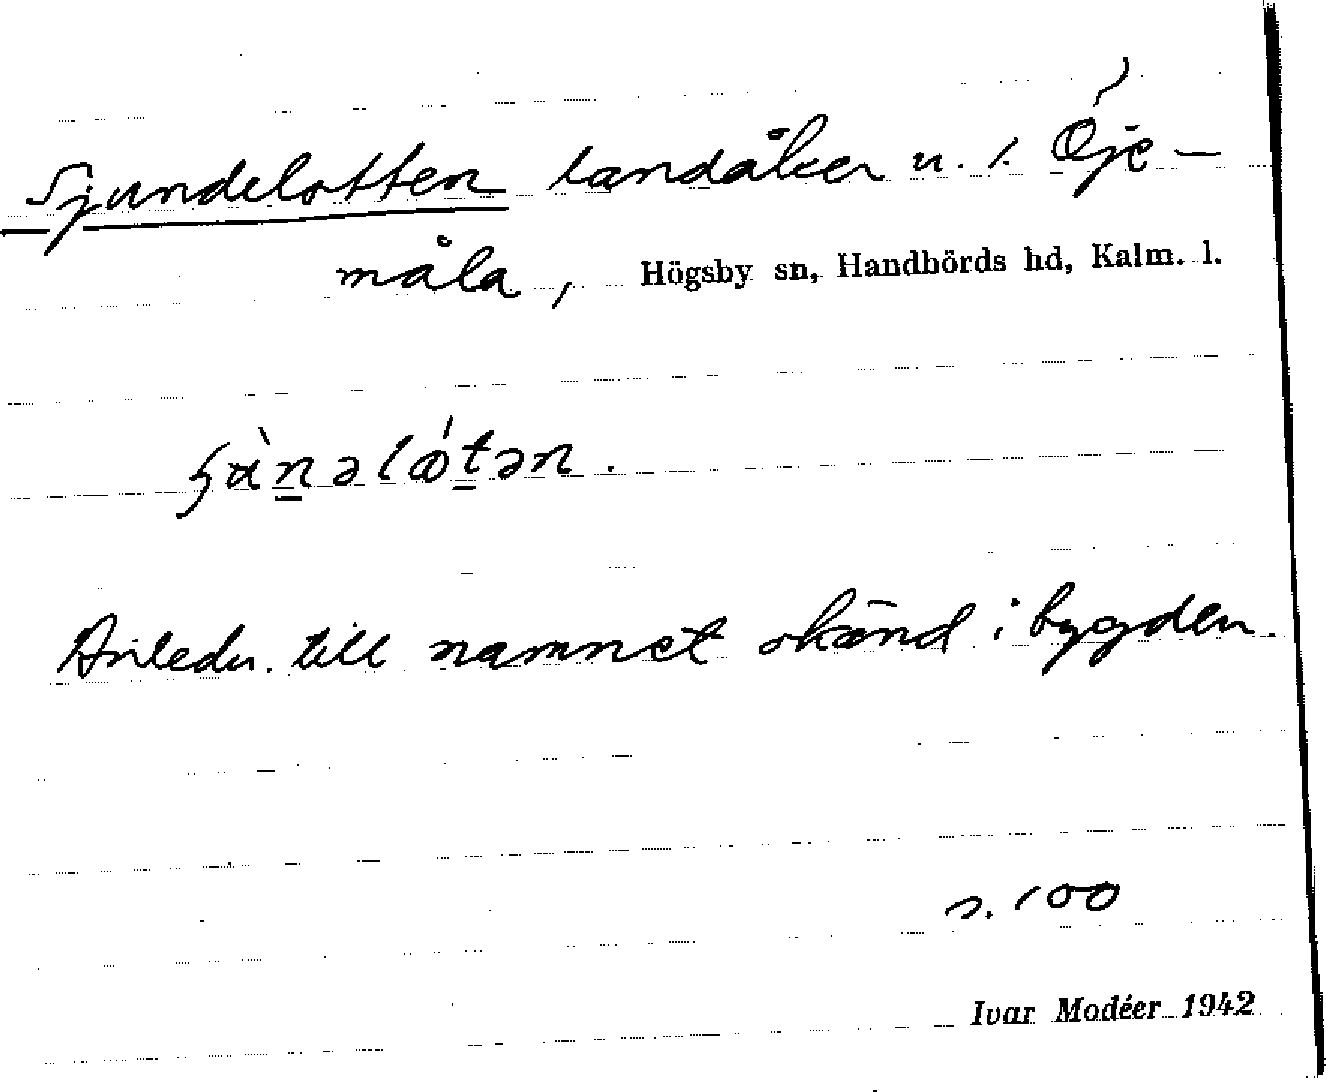 Sjundelotten landåker u. 1. Öje-
måla, Högsby sn, Handbörds hd, Kalm. l.
ɧɑ̀n̲əlǿt̲ən.
Anledn. till namnet okänd i bygden.
s. 100
Ivar Modéer 1942